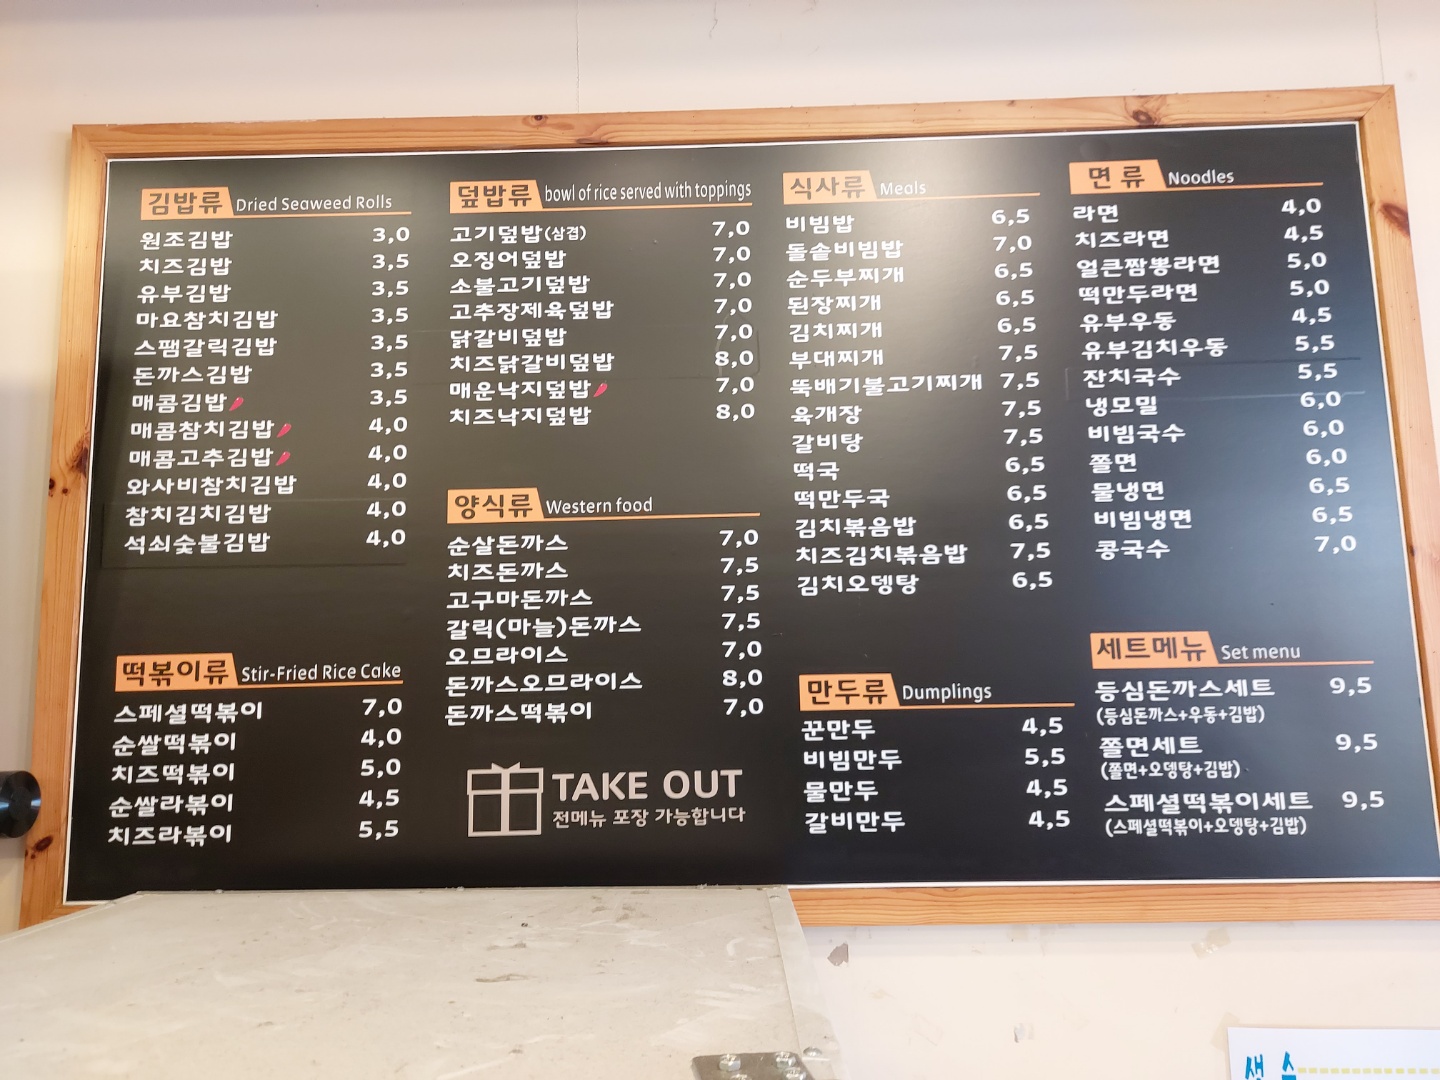 김밥류 Dried Seaweed Rolls
원조김밥 3,0
치즈김밥 3,5
유부김밥 3,5
마요참치김밥 3,5
스팸갈릭김밥 3,5
돈까스김밥 3,5
매콤김밥 3,5
매콤참치김밥 4,0
매콤고추김밥 4,0
와사비참치김밥 4,0
참치김치김밥 4,0
석쇠숯불김밥 4,0
떡볶이류 Stir-Fried Rice Cake
스페셜떡볶이 7,0
순쌀떡볶이 4,0
치즈떡볶이 5,0
순쌀라볶이 4,5
치즈라볶이 5,5
덮밥류 bowl of rice served with toppings
고기덮밥(삼겹) 7,0
오징어덮밥 7,0
소불고기덮밥 7,0
고추장제육덮밥 7,0
닭갈비덮밥 7,0
치즈닭갈비덮밥 8,0
매운낙지덮밥 7,0
치즈낙지덮밥 8,0
양식류 Western food
순살돈까스 7,0
치즈돈까스 7,5
고구마돈까스 7,5
갈릭(마늘)돈까스 7,5
오므라이스 7,0
돈까스오므라이스 8,0
돈까스떡볶이 7,0
TAKE OUT
전메뉴 포장 가능합니다
식사류 Meals
비빔밥 6,5
돌솥비빔밥 7,0
순두부찌개 6,5
된장찌개 6,5
김치찌개 6,5
부대찌개 7,5
뚝배기불고기찌개 7,5
육개장 7,5
갈비탕 7,5
떡국 6,5
떡만두국 6,5
김치볶음밥 6,5
치즈김치볶음밥 7,5
김치오뎅탕 6,5
만두류 Dumplings
꾼만두 4,5
비빔만두 5,5
물만두 4,5
갈비만두 4,5
면 류 Noodles
라면 4,0
치즈라면 4,5
얼큰짬뽕라면 5,0
떡만두라면 5,0
유부우동 4,5
유부김치우동 5,5
잔치국수 5,5
냉모밀 6,0
비빔국수 6,0
쫄면 6,0
물냉면 6,5
비빔냉면 6,5
콩국수 7,0
세트메뉴 Set menu
등심돈까스세트 9,5
(등심돈까스+우동+김밥)
쫄면세트 9,5
(쫄면+오뎅탕+김밥)
스페셜떡볶이세트 9,5
(스페셜떡볶이+오뎅탕+김밥)
생 수